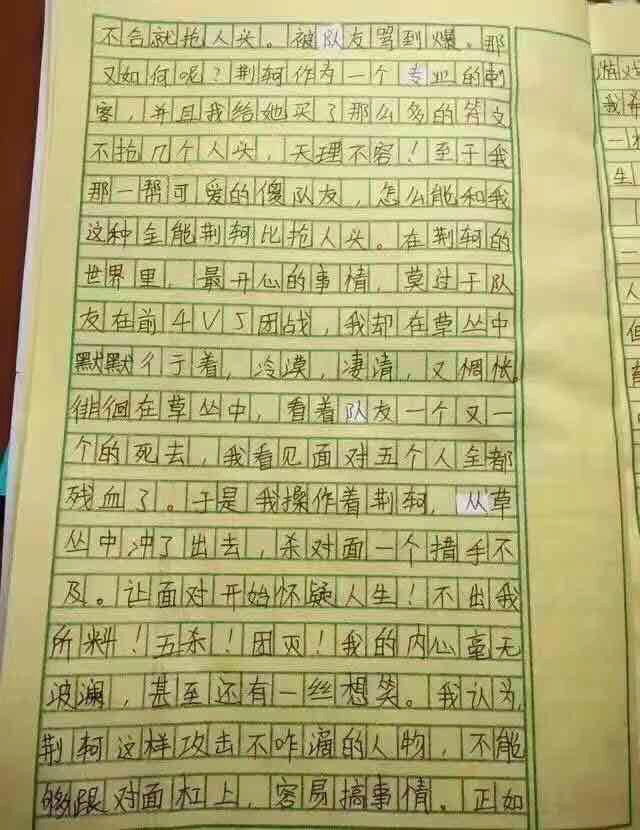 不合就抢人头。被队友骂到爆。那
又如何呢？荆轲作为一个专业的刺
客，并且我给她买了那么多的符文
不抢几个人头，天理不容！至于我
那一帮可爱的傻队友，怎么能和我
这种全能荆轲比抢人头。在荆轲的
世界里，最开心的事情，莫过于队
友在前4V5团战，我却在草丛中
默默彳亍着，冷漠，凄清，又惆怅。
徘徊在草丛中，看着队友一个又一
个的死去，我看见面对五个人全都
残血了。于是我操作着荆轲，从草
丛中冲了出去，杀对面一个措手不
及。让面对开始怀疑人生！不出我
所料！五杀！团灭！我的内心毫无
波澜，甚至还有一丝想笑。我认为，
荆轲这样攻击不咋滴的人物，不能
够跟对面杠上，容易搞事情。正如
我希
一
生
人
但